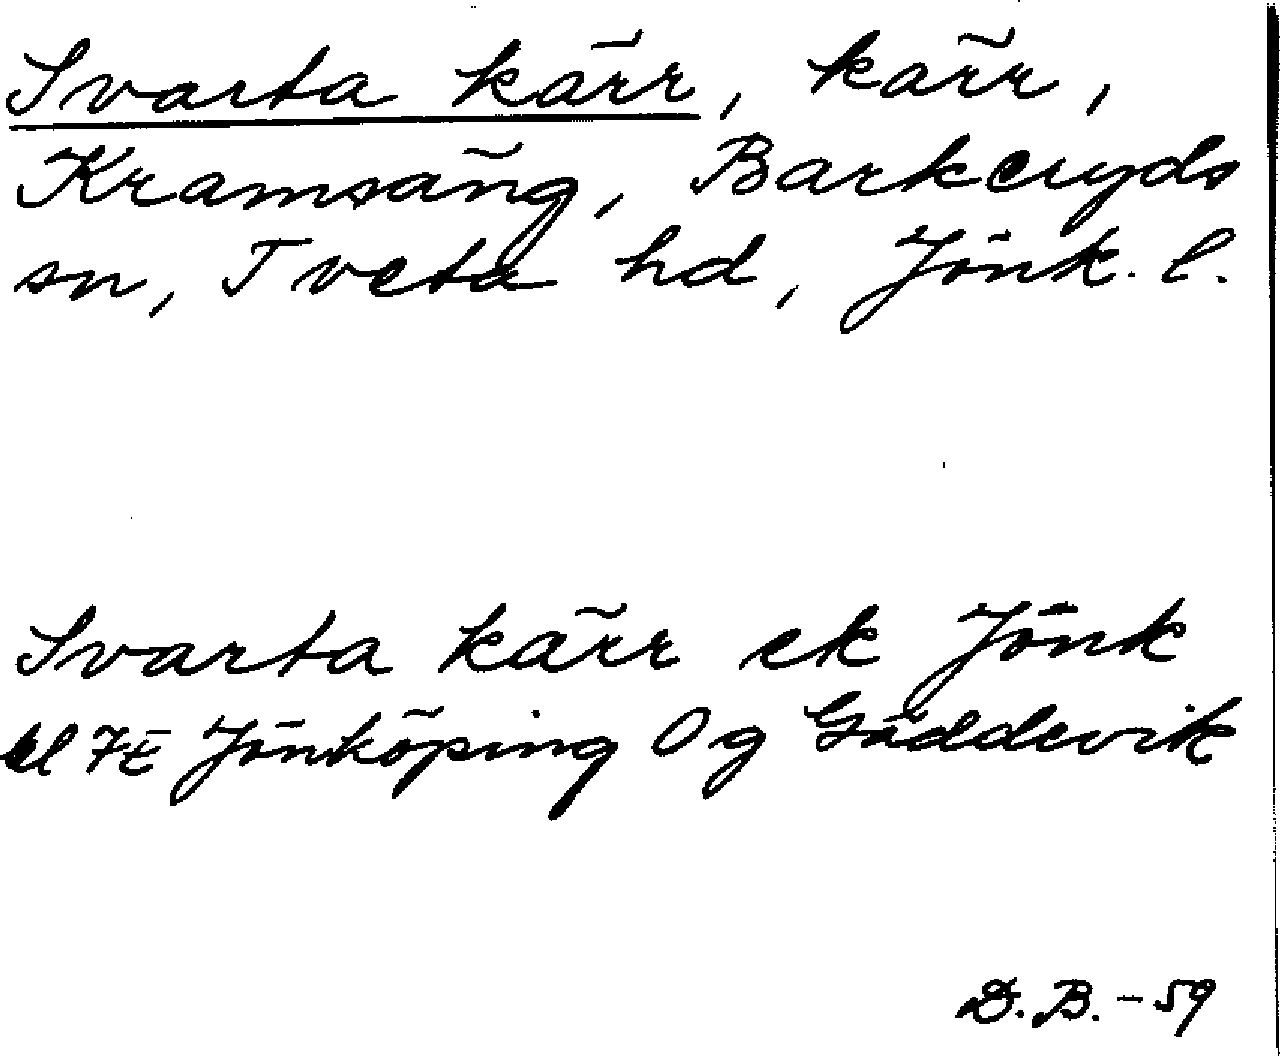 Svarta kärr, kärr,
Kramsäng, Barkeryds
sn, Tveta hd, Jönk. l.
Svarta kärr ek Jönk
bl 7E Jönköping O g Gäddevik
D. B. - 59